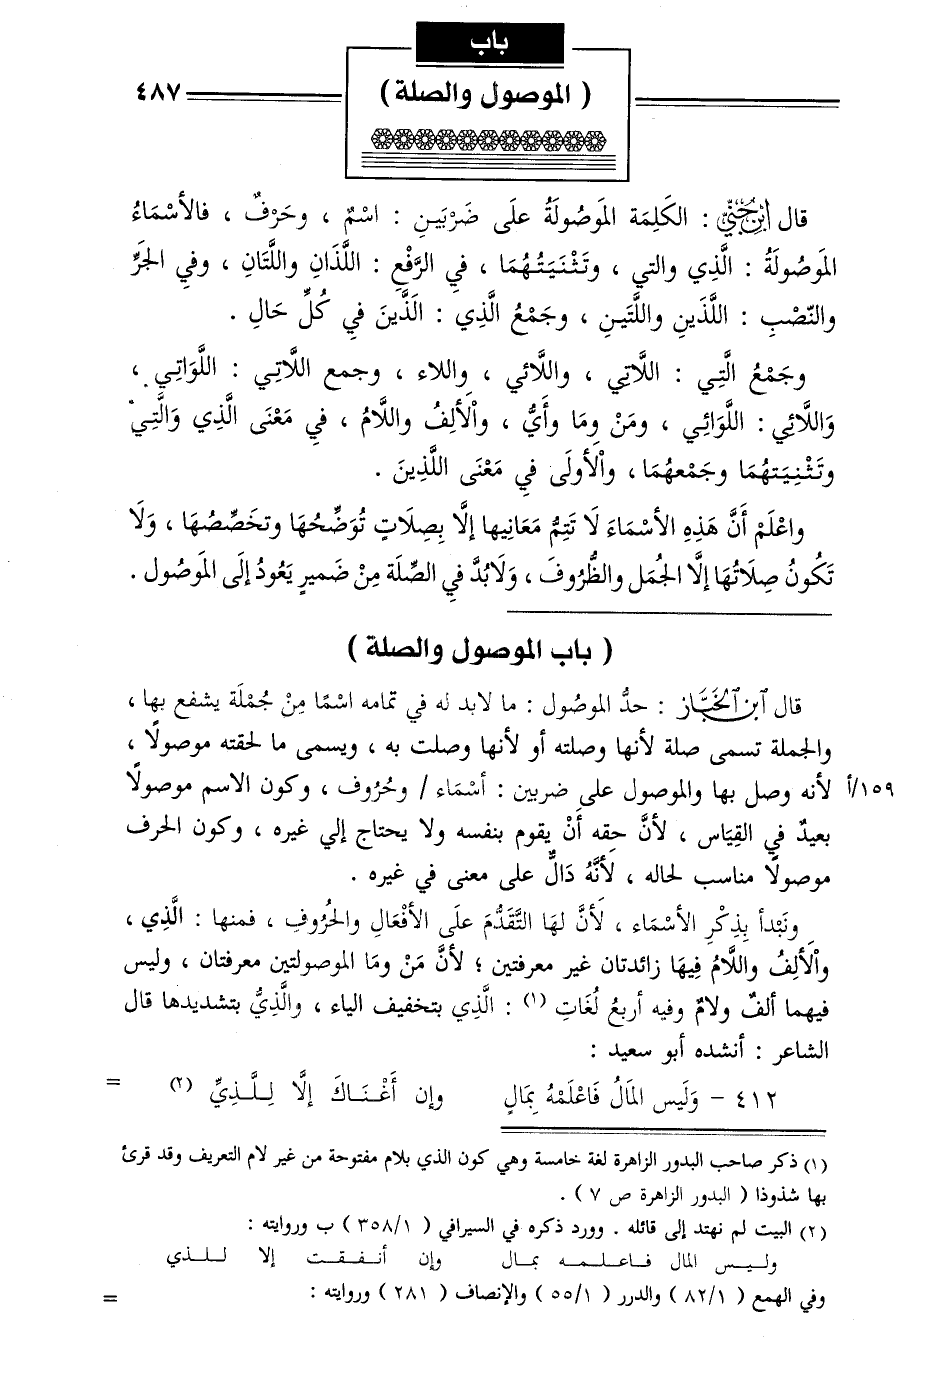 باب
( الموصول والصلة )
٤٨٧
قال ابن جني : الكَلِمَة المَوصُولَةُ علَى ضَرْبَينِ : اسْمٌ ، وحَرْفٌ ، فالأسْمَاءُ
المَوصُولَةُ : الَّذِي والتي ، وتَثْنِيَتُهُمَا ، فيِ الرَّفْعِ : اللَّذَانِ واللَّتَانِ ، وفيِ الجَرِّ
والنّصْبِ : اللَّذَينِ واللَّتَينِ ، وجَمْعُ الَّذِي : الَّذَينَ فيِ كُلِّ حَالِ .
وجَمْعُ الَّتِي : اللاَّتِي ، واللَّائي ، واللاء ، وجمع اللاَّتِي : اللَّوَاتِي ،
وَاللَّائِي : اللَّوَائِي ، ومَنْ ومَا وأَيُّ ، والْأَلِفُ واللَّامُ ، فيِ مَعْنَى الَّذِي وَالَّتِيْ
وتَثْنِيَتهُمَا وجَمْعهُمَا ، والْأُولَى فيِ مَعْنَى اللَّذِينَ .
واعْلَمْ أَنَّ هَذِهِ الأسْمَاءَ لَا تَتِمُّ مَعَانِيها إلَّا بِصِلَاتٍ تُوَضِّحُهَا وتخَصِّصُهَا ، وَلَا
تَكُونُ صِلَاتُهَا إلَّا الجُمَل والظُّرُوفَ ، وَلَابُدَّ فيِ الصِّلَة مِنْ ضَميرٍ يَعُودُ إلَى المَوصُول .
( باب الموصول والصلة )
قال ابن الخباز : حدُّ الموصُول : ما لابد له في تمامه اسْمًا مِنْ جُمْلَة يشفع بها ،
والجملة تسمى صلة لأنها وصلته أو لأنها وصلت به ، ويسمى ما لحقته موصولًا ،
١٥٩/أ لأنه وصل بها والموصول على ضربين : أسْمَاء / وحُرُوف ، وكون الاسم موصولًا
بعيدٌ في القِيَاس ، لأنَّ حقه أَنْ يقوم بنفسه ولا يحتاج إلي غيره ، وكون الحرف
موصولًا مناسب لحاله ، لأنَّهُ دَالٌّ على معنى في غيره .
ونَبْدأ بِذِكْرِ الأسْمَاء ، لأنَّ لهَا التَّقَدُّمَ علَى الأفْعَال والحُرُوفِ ، فمنها : الَّذِي ،
والْأَلِفُ واللَّامُ فِيهَا زائدتان غير معرفتين ؛ لأنَّ مَنْ ومَا الموصولتين معرفتان ، وليس
فيهما ألفٌ ولامٌ وفيه أربعُ لُغَاتِ (١) : الَّذِي بتخفيف الياء ، والَّذِيُّ بتشديدها قال
الشاعر : أنشده أبو سعيد :
٤١٢ - وَلَيس المَالُ فَاعْلَمْهُ بِمَالٍ وإن أَغْنَاكَ إلَّا لِلَّذِيِّ (٢) =
(١) ذكر صاحب البدور الزاهرة لغة خامسة وهي كون الذي بلام مفتوحة من غير لام التعريف وقد قرئ
بها شذوذا ( البدور الزاهرة ص ٧ ) .
(٢) البيت لم نهتد إلى قائله . وورد ذكره في السيرافي ( ٣٥٨/١ ) ب وروايته :
وليس المال فاعلمه بمال وإن أنفقت إلا للذي
وفي الهمع ( ٨٢/١ ) والدرر ( ٥٥/١ ) والإنصاف ( ٢٨١ ) وروايته : =